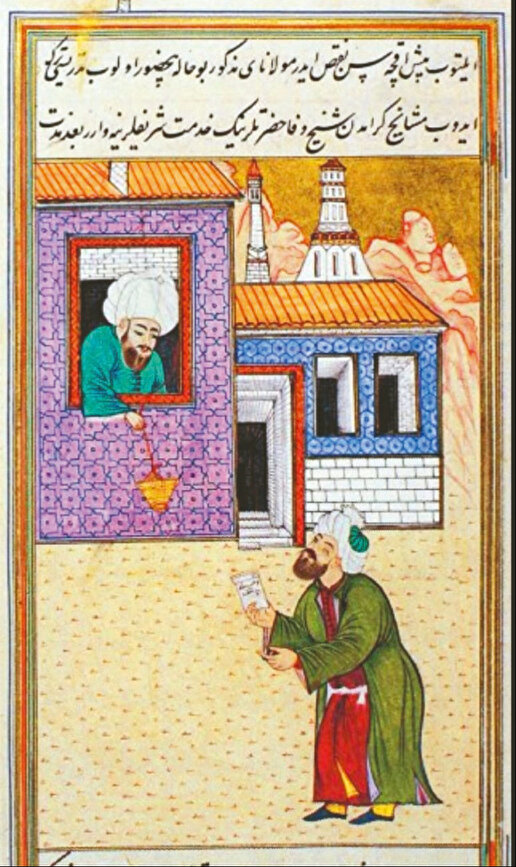 ایلتوب بیش اقچه سن نقص ایدر مولانای مذکور بو حاله بیحضور اولوب تدریسی
ایدوب مشایخ کرامدن شیخ وفا حضرتلرینک خدمت شریفلرینه وارر بعد مدت